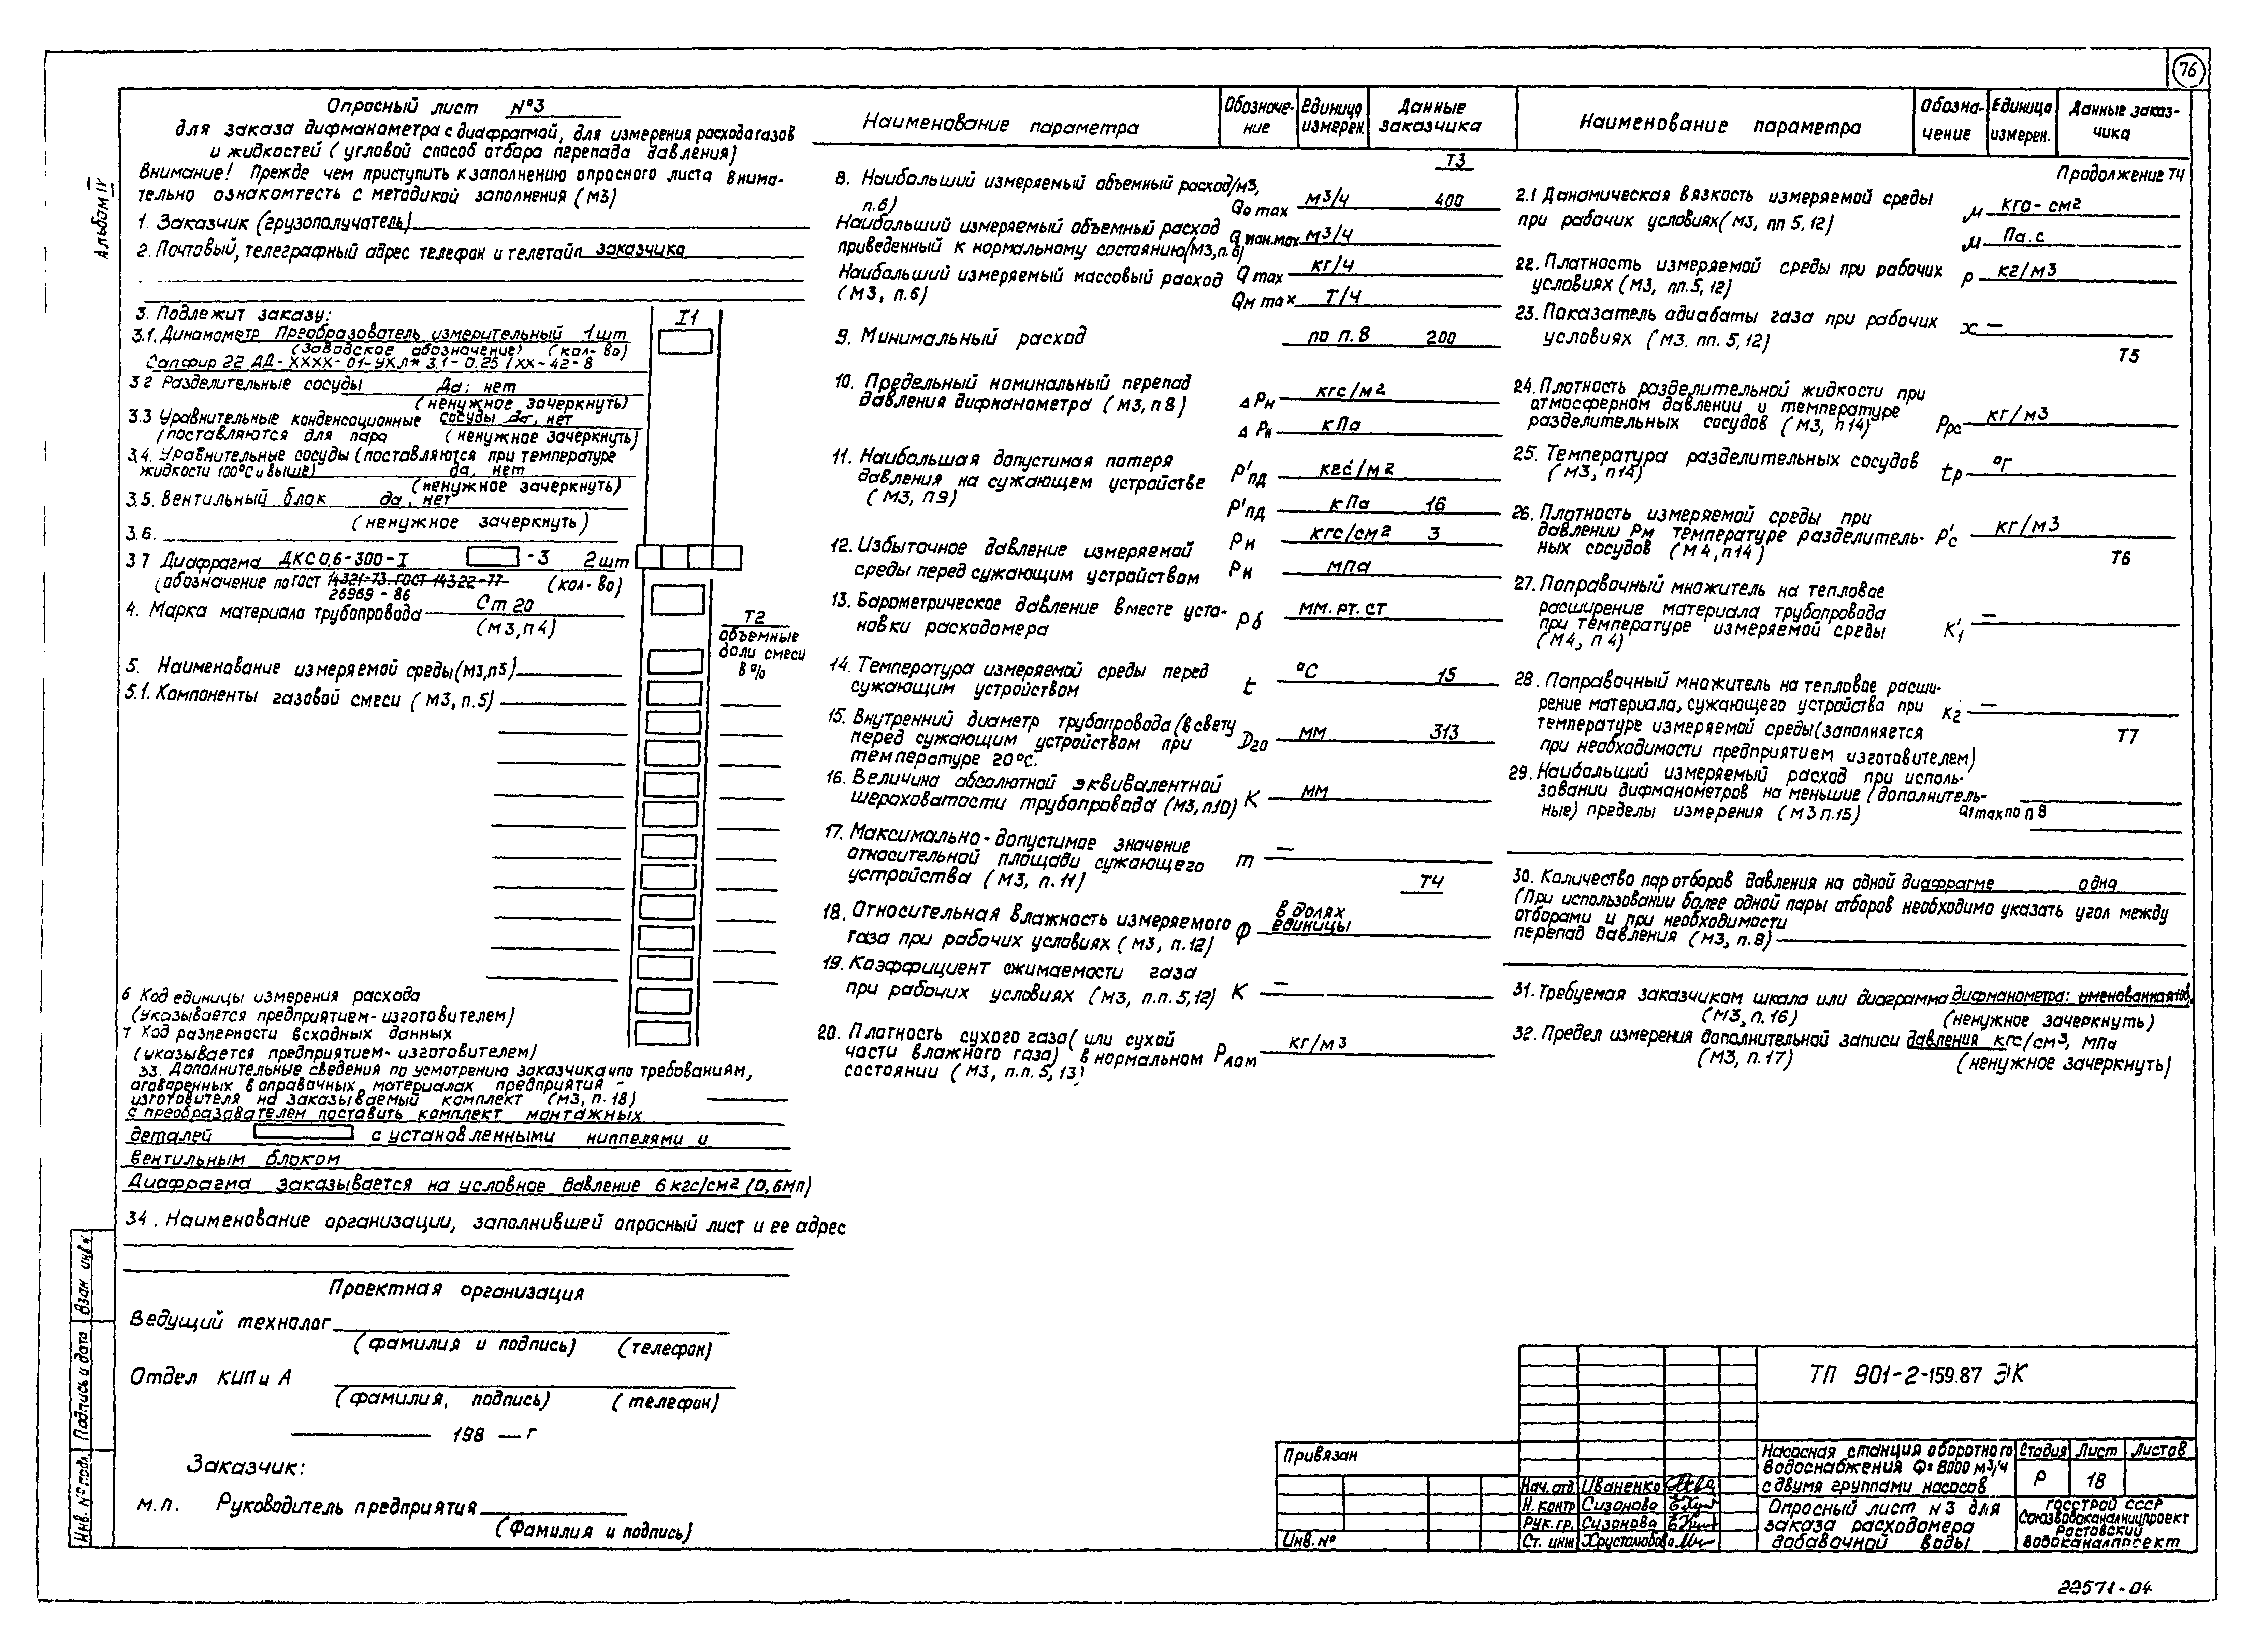 76
Альбом IV
Опросный лист №3
для заказа дифманометра с диафрагмой, для измерения расхода газов
и жидкостей (угловой способ отбора перепада давления)
Внимание! Прежде чем приступить к заполнению опросного листа внима-
тельно ознакомтесть с методикой заполнения (М3)
1. Заказчик (грузополучатель)
2. Почтовый, телеграфный адрес телефон и телетайп заказчика
3. Подлежит заказу:
I1
3.1. Динамометр Преобразователь измерительный 1 шт
(заводское обозначение) (кол-во)
Сапфир 22 ДД-ХХХХ-01-УХЛ* 3.1-0.25/ХХ-42-8
3 2 Разделительные сосуды Да; нет
(ненужное зачеркнуть)
3.3 Уравнительные конденсационные сосуды да, нет
(поставляются для пара (ненужное зачеркнуть)
3.4. Уравнительные сосуды (поставляются при температуре
жидкости 100°С и выше) да, нет
(ненужное зачеркнуть)
3.5. Вентильный блок да, нет
(ненужное зачеркнуть)
3.6.
3 7 Диафрагма ДКС 0,6-300-I -3 2 шт
(обозначение по ГОСТ 14321-73. ГОСТ 14322-77 (кол-во)
26969-86
4. Марка материала трубопровода Ст 20
(М3, п4)
Т2
объемные
доли смеси
в %
5. Наименование измеряемой среды (М3, п5)
5.1. Компоненты газовой смеси (М3, п.5)
6 Код единицы измерения расхода
(указывается предприятием-изготовителем)
7 Код размерности всходных данных
(указывается предприятием-изготовителем)
33. Дополнительные сведения по усмотрению заказчика и по требованиям,
оговоренных в оправочных материалах предприятия-
изготовителя на заказываемый комплект (М3, п.18)
с преобразователем поставить комплект монтажных
деталей с установленными ниппелями и
вентильным блоком
Диафрагма заказывается на условное давление 6 кгс/см2 (0,6МП)
34. Наименование организации, заполнившей опросный лист и ее адрес
Проектная организация
Ведущий технолог
(фамилия и подпись) (телефон)
Отдел КИП и А
(фамилия, подпись) (телефон)
198 — г
Заказчик:
м.п. Руководитель предприятия
(Фамилия и подпись)
Наименование параметра
Обозначе-
ние
Единица
измерен.
Данные
заказчика
Т3
8. Наибольший измеряемый объемный расход/М3,
п.6) Qо max м3/ч 400
Наибольший измеряемый объемный расход
приведенный к нормальному состоянию (М3, п.6) Qман.мах м3/ч
Наибольший измеряемый массовый расход Qmax кг/ч
(М3, п.6) Qм max Т/ч
9. Минимальный расход по п.8 200
10. Предельный номинальный перепад
давления дифманометра (М3, п8) ΔРн кгс/м2
ΔРн кПа
11. Наибольшая допустимая потеря
давления на сужающем устройстве Р'пд кгс/м2
(М3, П9)
Р'пд кПа 16
12. Избыточное давление измеряемой Ри кгс/см2 3
среды перед сужающим устройством Ри мПа
13. Барометрическое давление вместе уста-
новки расходомера Рб мм. рт. ст
14. Температура измеряемой среды перед
сужающим устройством t °С 15
15. Внутренний диаметр трубопровода (в свету
перед сужающим устройством при D20 мм 313
температуре 20°С.
16. Величина абсолютной эквивалентной
шероховатости трубопровода (М3, п10) К мм
17. Максимально-допустимое значение
относительной площади сужающего m —
устройства (М3, п.11)
Т4
18. Относительная влажность измеряемого
газа при рабочих условиях (М3, п.12) φ в долях
единицы
19. Коэффициент сжимаемости газа
при рабочих условиях (М3, п.п. 5,12) К —
20. Платность сухого газа (или сухой
части влажного газа) в нормальном Рлом кг/м3
состоянии (М3, п.п. 5,13)
Наименование параметра
Обозна-
чение
Единица
измерен.
Данные заказ-
чика
Продолжение Т4
2.1 Динамическая вязкость измеряемой среды
при рабочих условиях (М3, пп 5,12) μ кго-см2
μ Па.с
22. Платность измеряемой среды при рабочих
условиях (М3, пп.5,12) ρ кг/м3
23. Показатель адиабаты газа при рабочих
условиях (М3. пп. 5,12) х —
Т5
24. Плотность разделительной жидкости при
атмосферном давлении и температуре
разделительных сосудов (М3, п14) Ррс кг/м3
25. Температура разделительных сосудов
(М3, п14) tр
26. Плотность измеряемой среды при
давлении Рм температуре разделитель-
ных сосудов (М4, п14) Р'с кг/м3
Т6
27. Поправочный множитель на тепловое
расширение материала трубопровода
при температуре измеряемой среды К'1 —
(М4, п 4)
28. Поправочный множитель на тепловое расши-
рение материала, сужающего устройства при К2 —
температуре измеряемой среды (заполняется
при необходимости предприятием изготовителем)
Т7
29. Наибольщий измеряемый расход при исполь-
зовании дифманометров на меньшие (дополнитель-
ные) пределы измерения (М3 п.15) Q1max по п 8
30. Количество пар отборов давления на одной диафрагме одна
(При использовании более одной пары отборов необходимо указать угол между
отборами и при необходимости
перепад давления (М3, п.8)
31. Требуемая заказчиком шкала или диаграмма дифманометра: именованная
(М3, п.16) (ненужное зачеркнуть)
32. Предел измерения дополнительной записи давления кгс/см3, МПа
(М3, п.17) (ненужное зачеркнуть)
Взам инв №
Подпись и дата
Инв. № подл.
Привязан
Инв. №
ТП 901-2-159.87 ЭК
Нач. отд. Иваненко
Н. контр Сизонова
Рук. гр. Сизонова
Ст. инж Хрусталюбова
Насосная станция оборотного
водоснабжения Q=8000 м3/ч
с двумя группами насосов
Стадия Лист Листов
Р 18
Опросный лист №3 для
заказа расходомера
добавочной воды
ГОССТРОЙ СССР
Союзводоканалниипроект
Ростовский
Водоканалпроект
22571-04